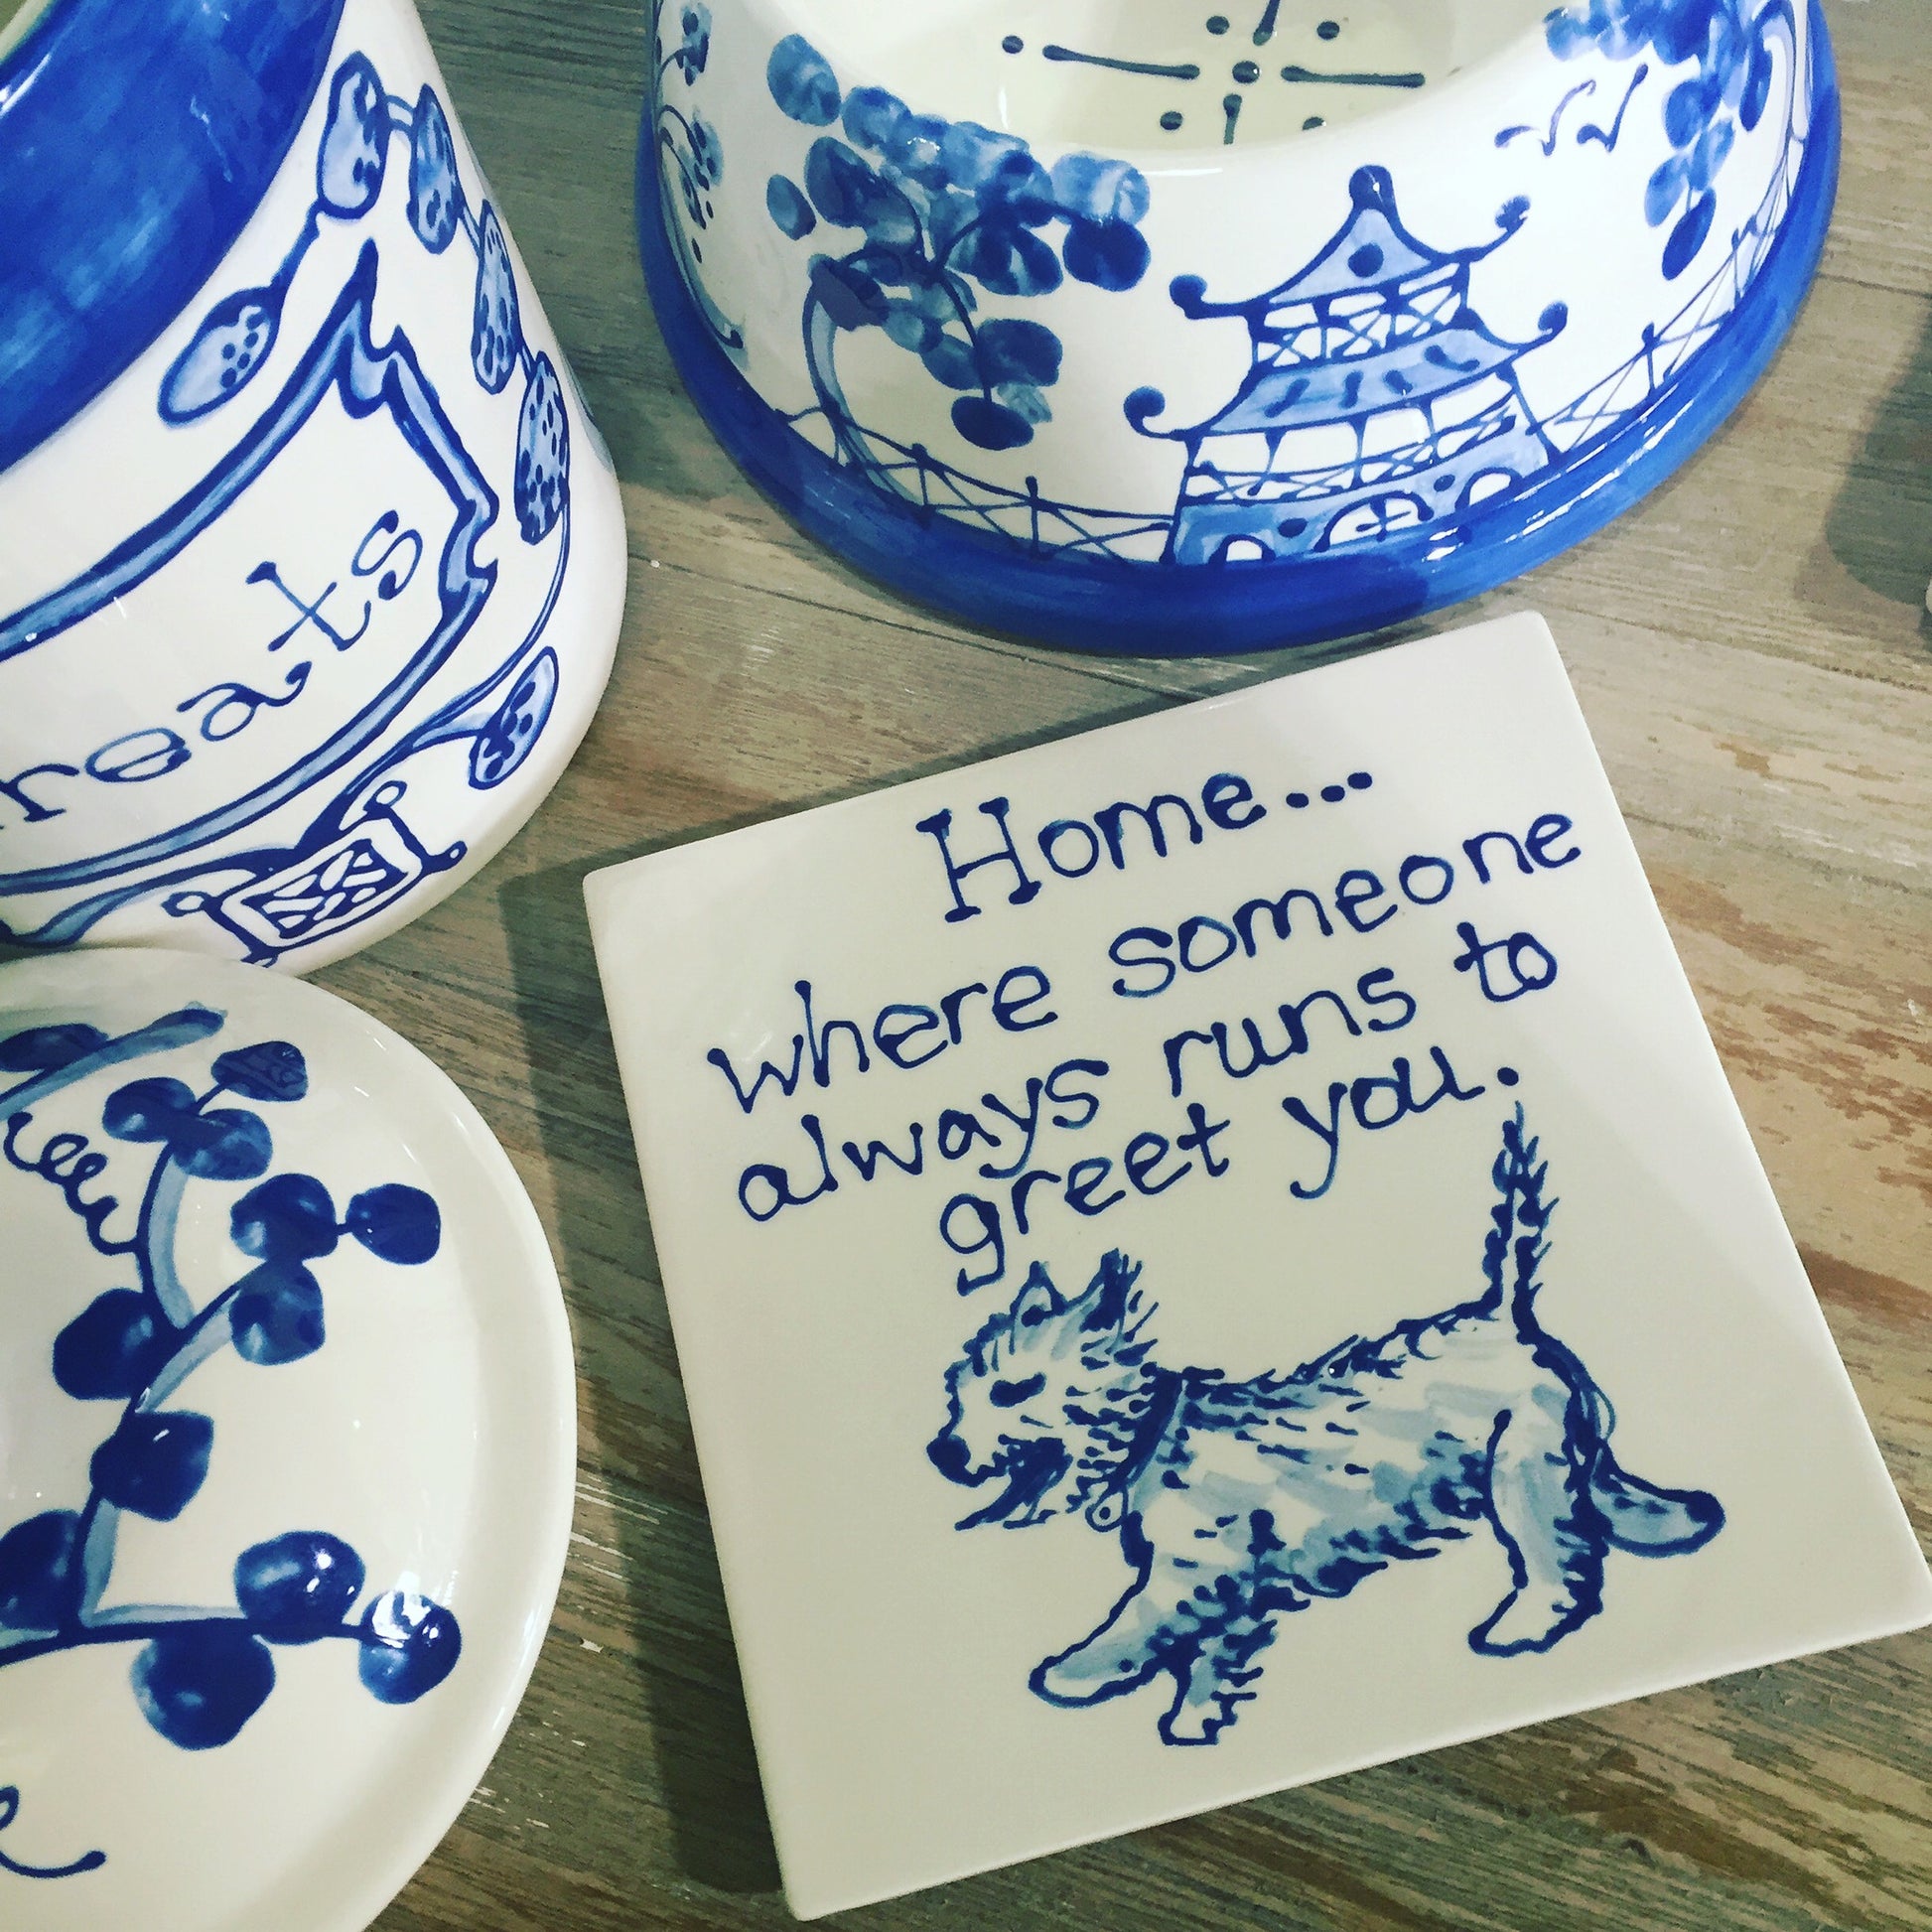 reats
Home...
where someone
always runs to
greet you.
e